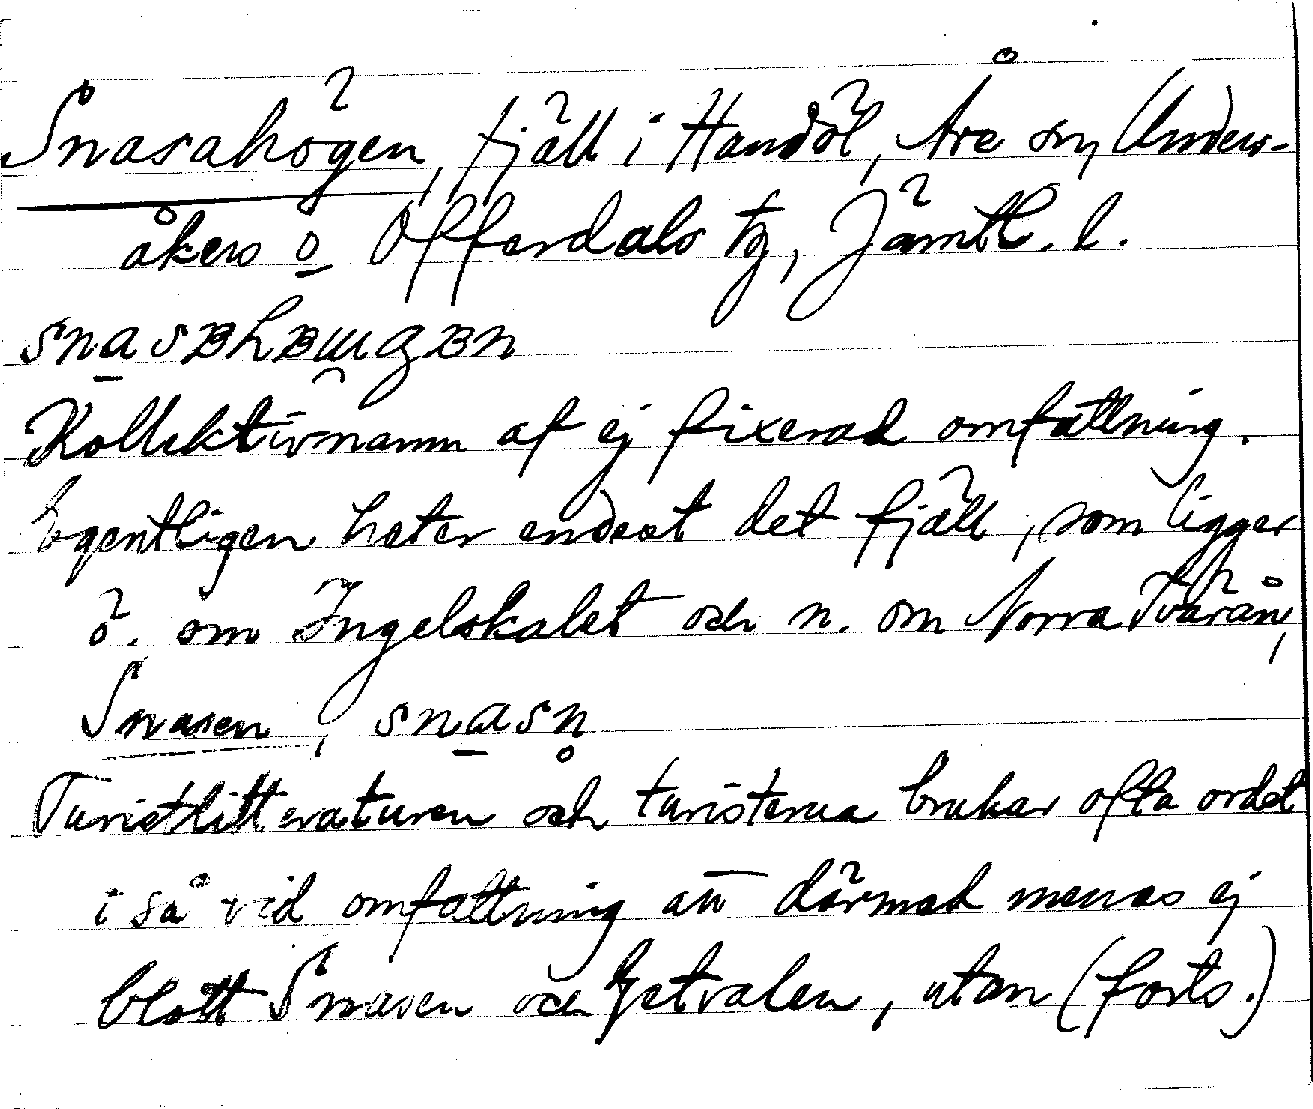 Snasahögen, fjäll i Handöl, Åre sn, Unders-
åkers o Offerdals tg, Jämtl. l.
Kollektivnamn af ej fixerad omfattning.
Egentligen heter endast det fjäll, som ligger
ö. om Ingelskalet och n. om Norra Tvärån,
Snasen, snasn̥
Turistlitteraturen och turisterna brukar ofta ordet
i så vid omfattning att därmed menas ej
blott Snasen och Getvalen, utan (forts.)